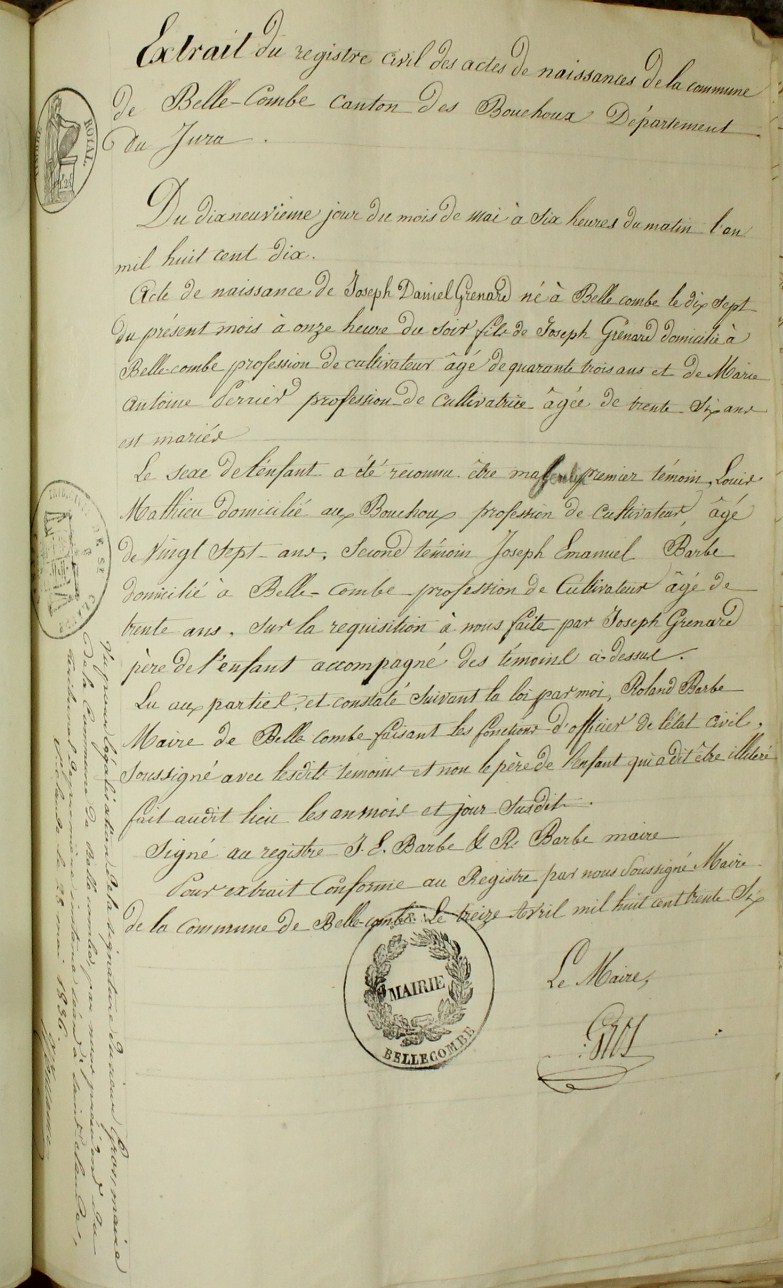 Extrait du registre civil des actes de naissances de la commune
de Belle-Combe canton des Bouchoux Département
du Jura.
Du dixneuvieme jour du mois de mai à Six heures du matin l'an
mil huit cent dix.
Acte de naissance de Joseph Daniel Grenard né à Belle combe le dix Sept
du présent mois à onze heure du Soir fils de Joseph Grénard domicilié à
Belle-combe profession de cultivateur âgé de quarante trois ans et de Marie
Antoine Perrier profession de cultivatrice âgée de trente Six ans
est mariés
Le sexe de l'enfant a été réconnu être premier témoin, Louis
Mathieu domicilié aux Bouchoux profession de cultivateur, âgé
de Vingt Sept ans, Second témoin Joseph Emanuel Barbe
domicilié à Belle-combe profession de Cultivateur âgé de
trente ans. Sur la requisition à nous faite par Joseph Grenard
père de l'enfant accompagné des témoins ci-dessus.
Lu aux parties, et constaté Suivant la loi par moi, Roland Barbe
Maire de Belle combe faisant les fonctions d'officier de l'état civil,
Soussigné avec lesdits temoins et non le père de l'enfant qui a dit être illiteré
fait audit lieu les an mois et jour Susdit.
Signé au registre J. E. Barbe & R. Barbe maire
Pour extrait Conforme au Registre par nous Soussigné Maire
de la commune de Belle-combe le treize Avril mil huit cent trente Six
Le Maire,
Gros
MAIRIE
BELLECOMBE
TIMBRE ROYAL
TRIBUNAL DE ST CLAUDE
Vu pour légalisation de la signature du sieur Gros, maire
de la Commune de Belle combe, par nous président du
tribunal de première instance séant à Saint-Claude,
St Claude le 25 mai 1836.